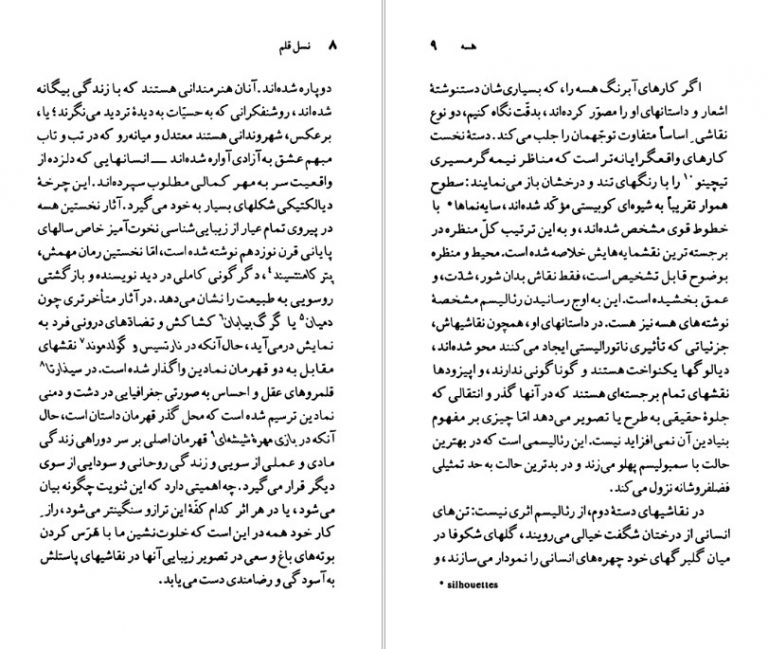 ۸ نسل قلم
دوپاره شده‌اند. آنان هنرمندانی هستند که با زندگی بیگانه
شده‌اند، روشنفکرانی که به حسیّات به دیدهٔ تردید می‌نگرند؛ یا،
برعکس، شهروندانی هستند معتدل و میانه‌رو که در تب و تاب
مبهم عشق به آزادی آواره شده‌اند ــــ انسانهایی که دلزده از
واقعیت سر به مهر کمالی مطلوب سپرده‌اند. این چرخهٔ
دیالکتیکی شکلهای بسیار به خود می‌گیرد. آثار نخستین هسه
در پیروی تمام عیار از زیبایی‌شناسی نخوت‌آمیز خاص سالهای
پایانی قرن نوزدهم نوشته شده است، امّا نخستین رمان مهمش،
پتر کامنتسیند۴، دگرگونی کاملی در دید نویسنده و بازگشتی
روسویی به طبیعت را نشان می‌دهد. در آثار متأخرتری چون
دمیان۵ یا گرگ بیابان۶ کشاکش و تضادّهای درونی فرد به
نمایش درمی‌آید، حال آنکه در نارتسیس و گولدموند۷ نقشهای
مقابل به دو قهرمان نمادین واگذار شده است. در سیذارتا۸
قلمروهای عقل و احساس به صورتی جغرافیایی در دشت و دمنی
نمادین ترسیم شده است که محل گذر قهرمان داستان است، حال
آنکه در بازی مهرهٔ شیشه‌ای۹ قهرمان اصلی بر سر دوراهی زندگی
مادی و عملی از سویی و زندگی روحانی و سودایی از سوی
دیگر قرار می‌گیرد. چه اهمیتی دارد که این ثنویت چگونه بیان
می‌شود، یا در هر اثر کدام کفّهٔ این ترازو سنگینتر می‌شود، رازِ
کار خود همه در این است که خلوت‌نشین ما با هَرَس کردن
بوته‌های باغ و سعی در تصویر زیبایی آنها در نقاشیهای پاستلش
به آسودگی و رضامندی دست می‌یابد.
هسه ۹
اگر کارهای آبرنگ هسه را، که بسیاری‌شان دستنوشتهٔ
اشعار و داستانهای او را مصوّر کرده‌اند، بدقّت نگاه کنیم، دو نوع
نقاشیِ اساساً متفاوت توجّهمان را جلب می‌کند. دستهٔ نخست
کارهای واقعگرایانه‌تر است که مناظر نیمه گرمسیری
تیچینو۱۰ را با رنگهای تند و درخشان باز می‌نمایند: سطوح
هموار تقریباً به شیوه‌ای کوبیستی مؤکّد شده‌اند، سایه‌نماها* با
خطوط قوی مشخص شده‌اند، و به این ترتیب کلّ منظره در
برجسته‌ترین نقشمایه‌هایش خلاصه شده است. محیط و منظره
بوضوح قابل تشخیص است، فقط نقاش بدان شور، شدّت، و
عمق بخشیده است. این به اوج رسانیدن رئالیسم مشخصهٔ
نوشته‌های هسه نیز هست. در داستانهای او، همچون نقاشیهاش،
جزئیاتی که تأثیری ناتورالیستی ایجاد می‌کنند محو شده‌اند،
دیالوگها یکنواخت هستند و گوناگونی ندارند، و اپیزودها
نقشهای تمام برجسته‌ای هستند که در آنها گذر و انتقالی که
جلوهٔ حقیقی به طرح یا تصویر می‌دهد امّا چیزی بر مفهوم
بنیادین آن نمی‌افزاید نیست. این رئالیسمی است که در بهترین
حالت با سمبولیسم پهلو می‌زند و در بدترین حالت به حد تمثیلی
فضلفروشانه نزول می‌کند.
در نقاشیهای دستهٔ دوم، از رئالیسم اثری نیست: تن‌های
انسانی از درختان شگفت خیالی می‌رویند، گلهای شکوفا در
میان گلبرگهای خود چهره‌های انسانی را نمودار می‌سازند، و
* silhouettes